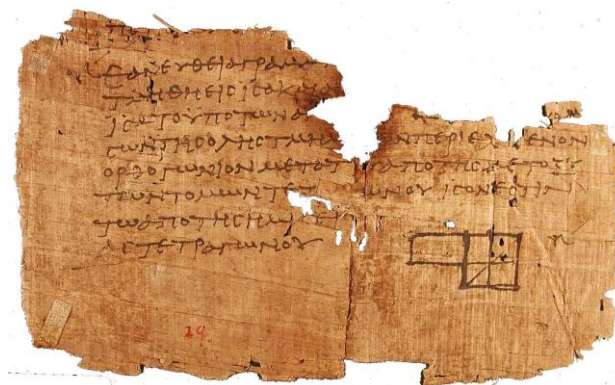 ΕΑΝΕΥΘΕΙΑΓΡΑΜΜ
ΤΜΗΘΗΕΙϹΙϹΑΚΑΙΑ
ΙϹΑΤΟΥΠΟΤΩΝΑ
ϹΩΝΤΗϹΟΛΗϹΤΜΗ ΝΠΕΡΙΕΧ ΜΕΝΟΝ
ΟΡΘΟΓΩΝΙΟΝΜΕΤΟΤ ΑΠΟΤΗϹΜΕΤΟΞΥ
ΤΩΝΤΟΜΩΝΤΕΤ ΩΝΟΥΙϹΟΝΕϹΤΙΝ
ΤΩΑΠΟΤΗϹΗΜΙϹΕΙ
ΑϹΤΕΤΡΑΓΩΝΟΥ
29